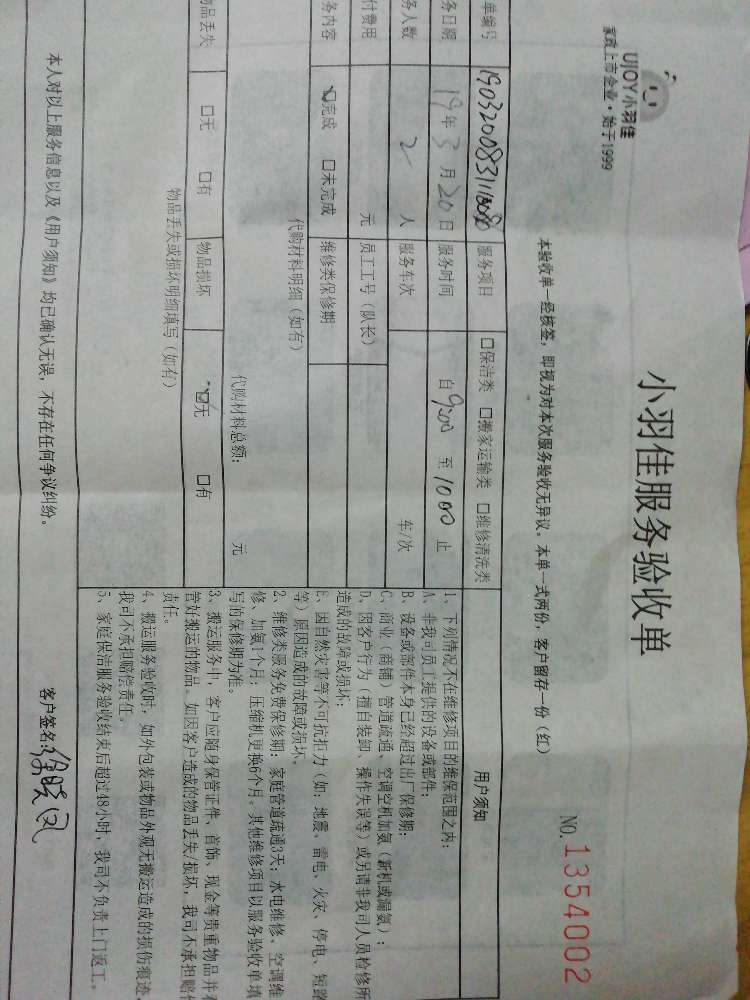 UJOY小羽佳
家政上市企业·始于1999
小羽佳服务验收单
NO. 1354002
本验收单一经核签，即视为对本次服务验收无异议。本单一式两份，客户留存一份（红）
单编号 服务项目 □保洁类 □搬家运输类 □维修清洗类
务日期 19年3月20日 服务时间 自9:00 至1000止
务人数 2人 服务车次 车/次
付费用 元 员工工号（队长）
务内容 ☑完成 □未完成 维修类保修期
代购材料明细（如有）
代购材料总额： 元
物品丢失 □无 □有 物品损坏 ☑无 □有
物品丢失或损坏明细填写（如有）
用户须知
1、下列情况不在维修项目的维保范围之内：
A、非我司员工提供的设备或部件；
B、设备或部件本身已经超过出厂保修期；
C、商业（商铺）管道疏通、空调空机加氨（新机或漏氨）；
D、因客户行为（擅自装卸、操作失误等）或另请非我司人员检修所
造成的故障或损坏；
E、因自然灾害等不可抗拒力（如：地震、雷电、火灾、停电、短路
等）原因造成的故障或损坏。
2、维修类服务免费保修期：家庭管道疏通3天；水电维修、空调维
修、加氨1个月；压缩机更换6个月。其他维修项目以服务验收单填
写的保修期为准。
3、搬运服务中，客户应随身保管证件、首饰、现金等贵重物品并
管好搬运的物品。如因客户造成的物品丢失/损坏，我司不承担赔
责任。
4、搬运服务验收时，如外包装或物品外观无搬运造成的损伤痕迹
我司不承担赔偿责任。
5、家庭保洁服务验收结束后超过48小时，我司不负责上门返工。
本人对以上服务信息以及《用户须知》均已确认无误，不存在任何争议纠纷。 客户签名：徐晓凤